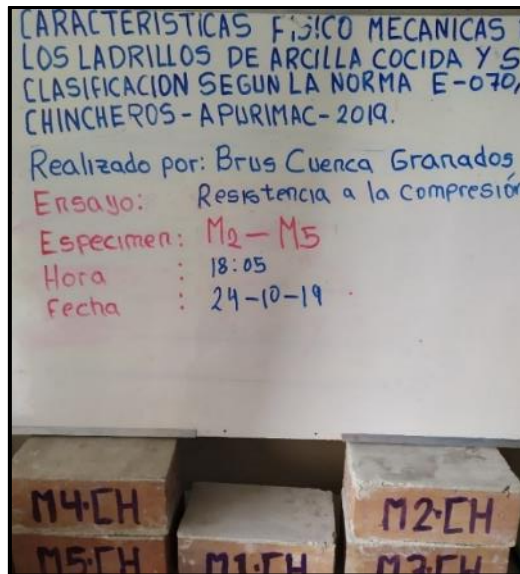 CARACTERISTICAS FISICO MECANICAS
LOS LADRILLOS DE ARCILLA COCIDA Y S
CLASIFICACION SEGUN LA NORMA E-070,
CHINCHEROS-APURIMAC-2019.
Realizado por: Brus Cuenca Granados
Ensayo: Resistencia a la compresión
Especimen: M2-M5
Hora : 18:05
Fecha : 24-10-19
M4·CH M2·CH
M5·CH M1·CH M3·CH